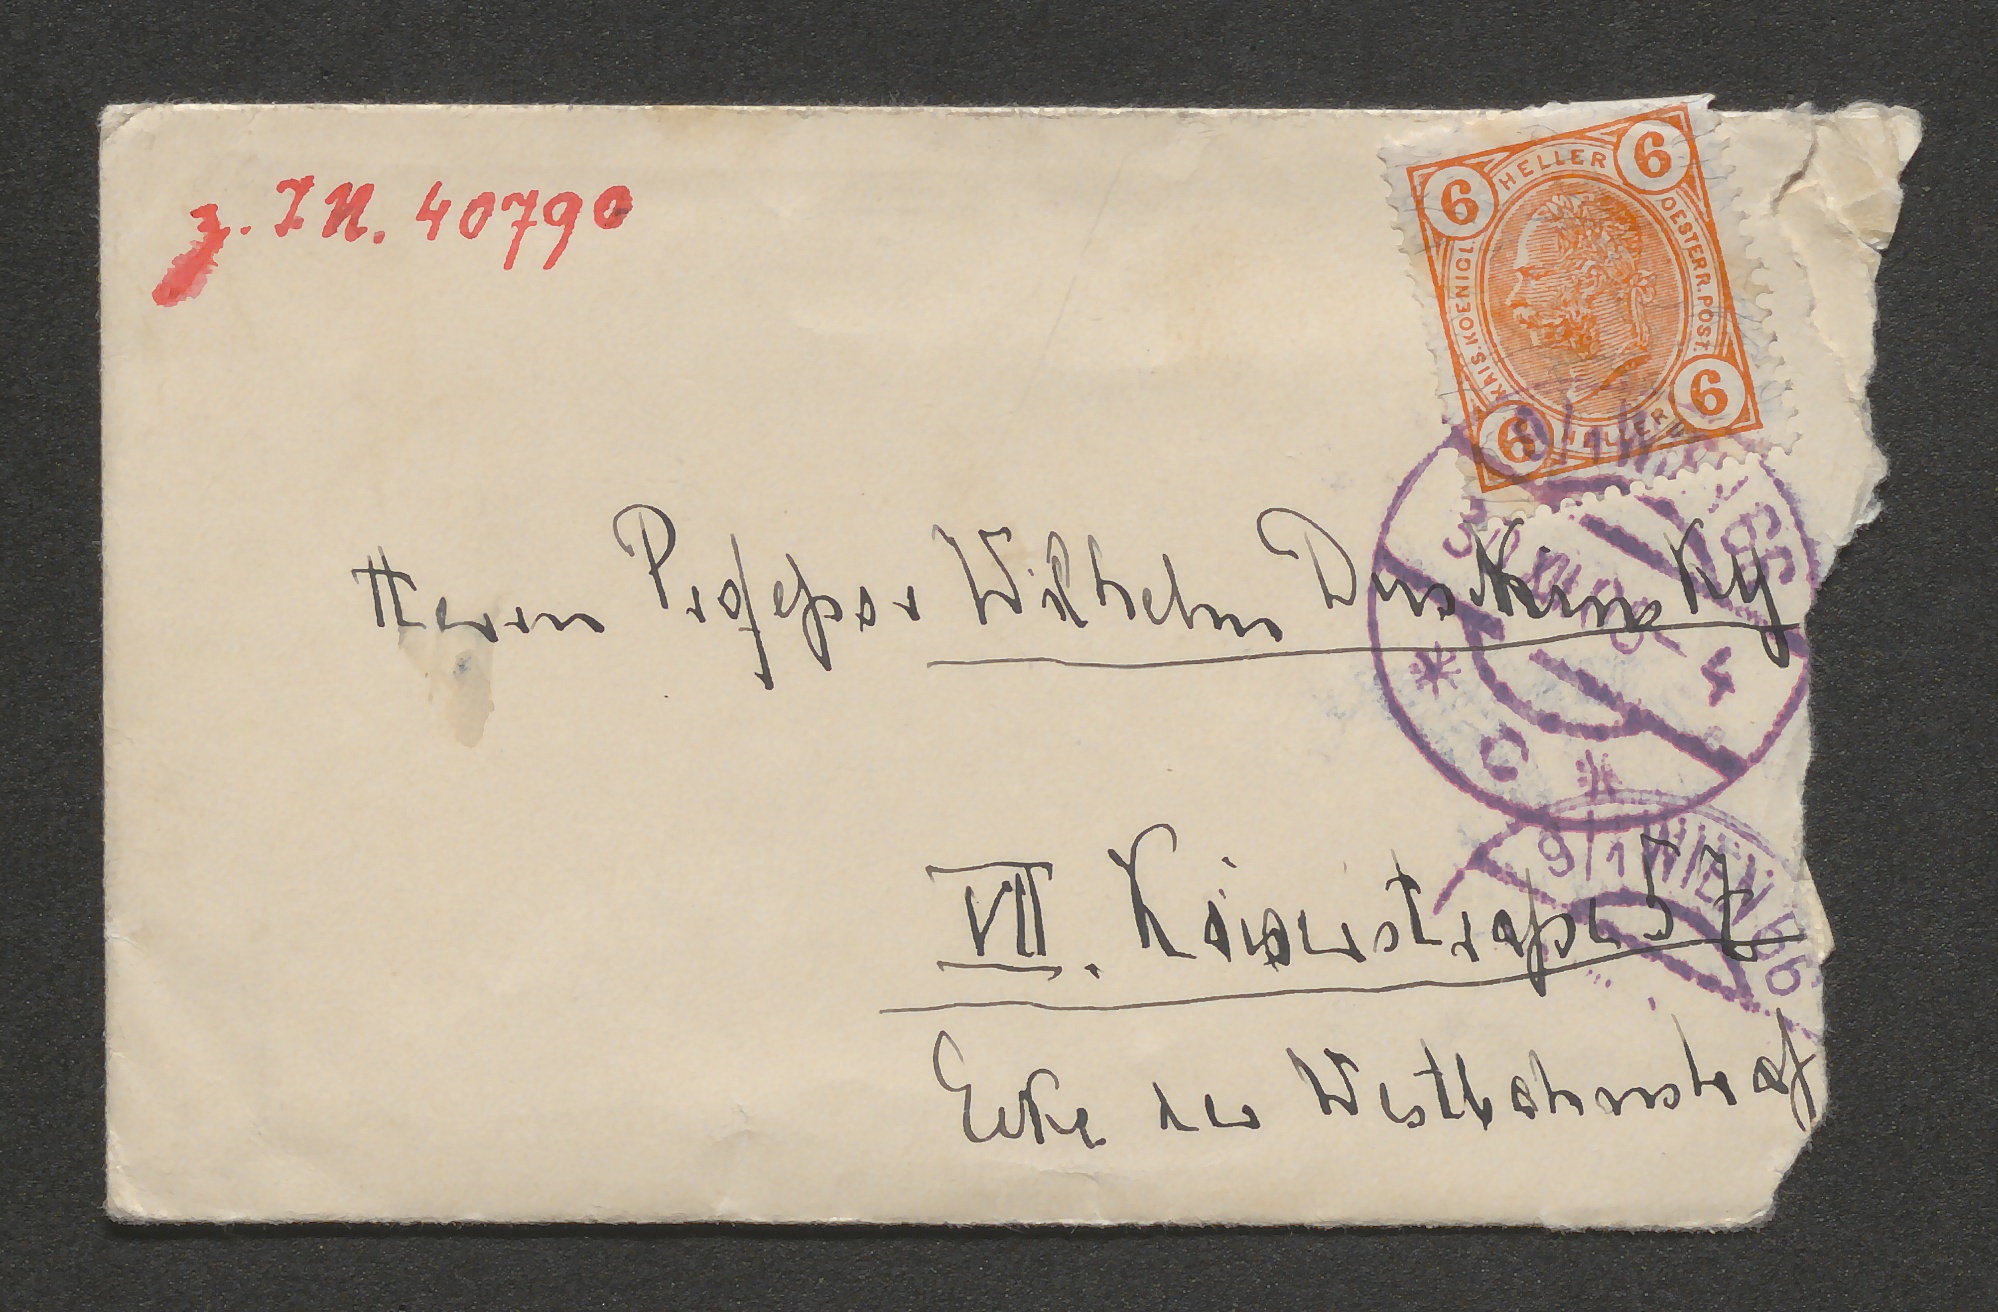 z. I.N. 40790
HELLER
6 6
KAIS. KOENIGL.
OESTERR. POST.
6 6
HELLER
9/1 W 66
XII 4
* C *
Herrn Professor Wilhelm
9/1 WIEN 66
VII. Kaiserstraße 57
Ecke der Westbahnstraß